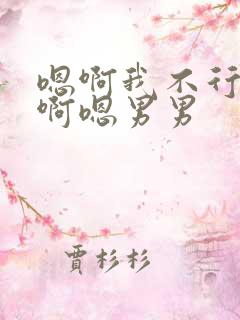 嗯啊我不行
啊嗯男男
賈杉杉